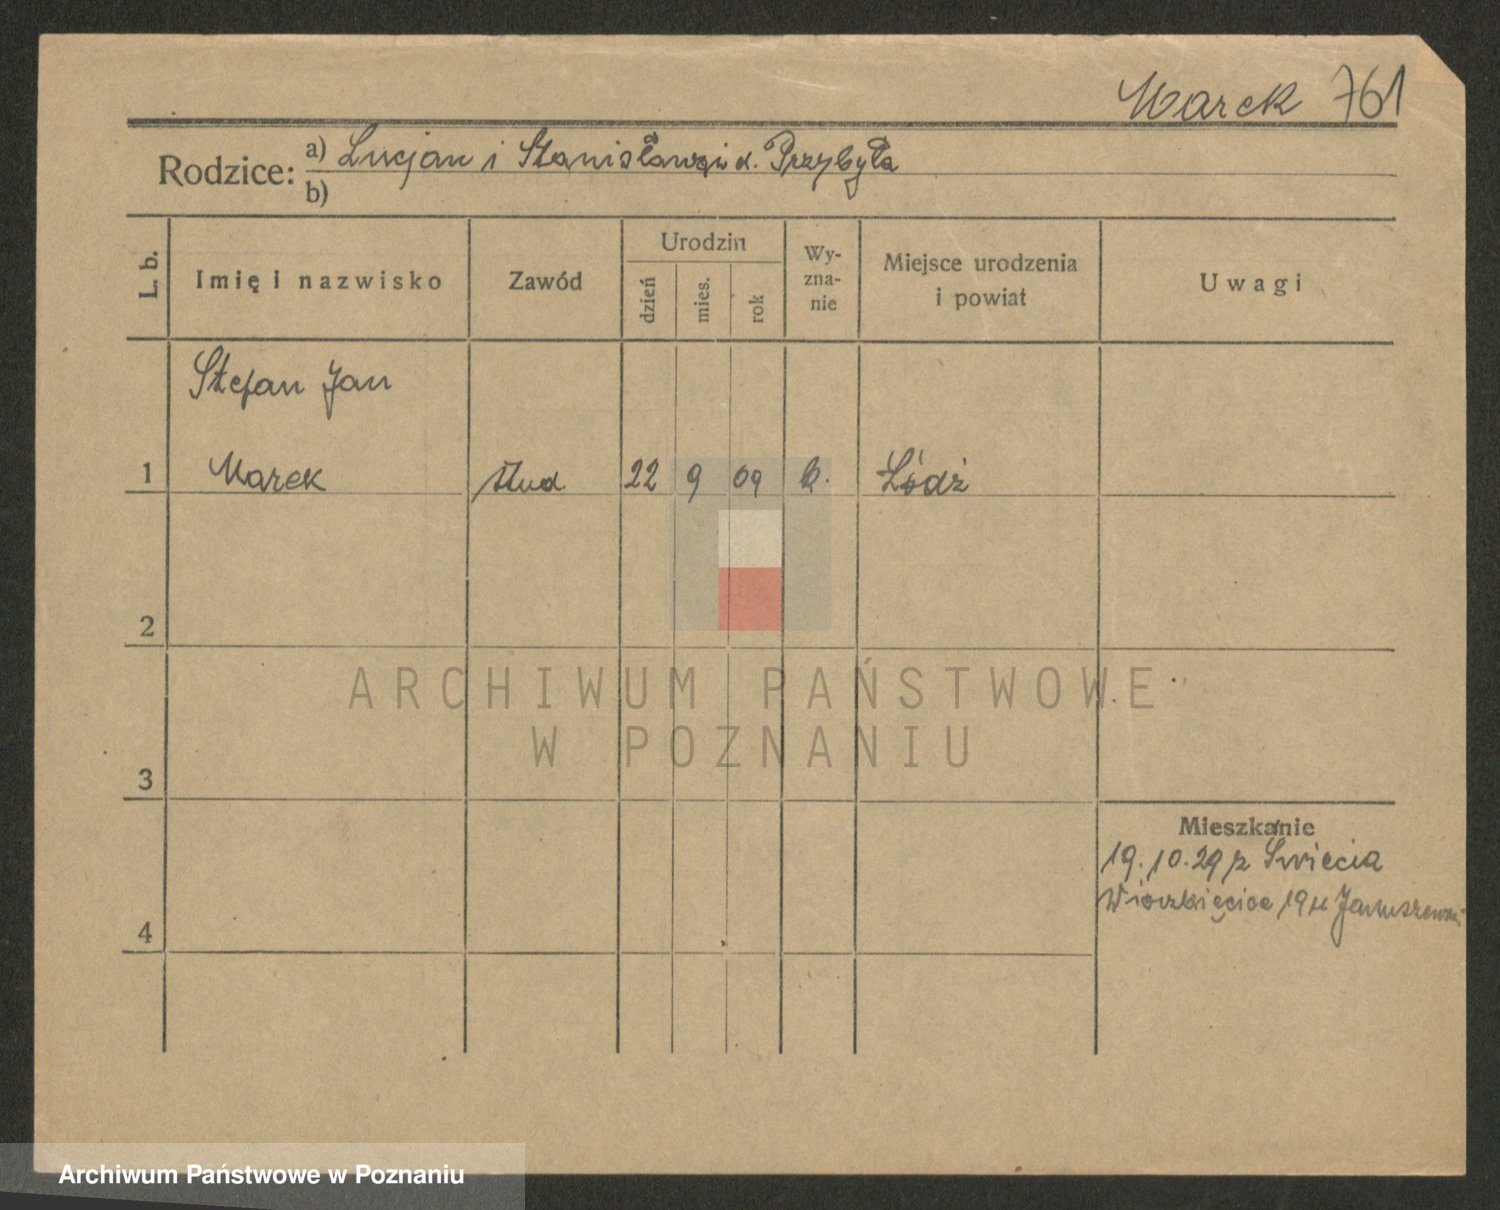 Marek 761
Rodzice: a) Lucjan i Stanisława z d. Przybyła
b)
L. b.
Imię i nazwisko
Zawód
Urodzin
dzień
mies.
rok
Wy-
zna-
nie
Miejsce urodzenia
i powiat
Uwagi
Stefan Jan
1 Marek stud 22 9 09 k. Łódź
2
ARCHIWUM PAŃSTWOWE
W POZNANIU
3
Mieszkanie
19.10.29 z Świecia
Wierzbięcice 19 u
4
Archiwum Państwowe w Poznaniu